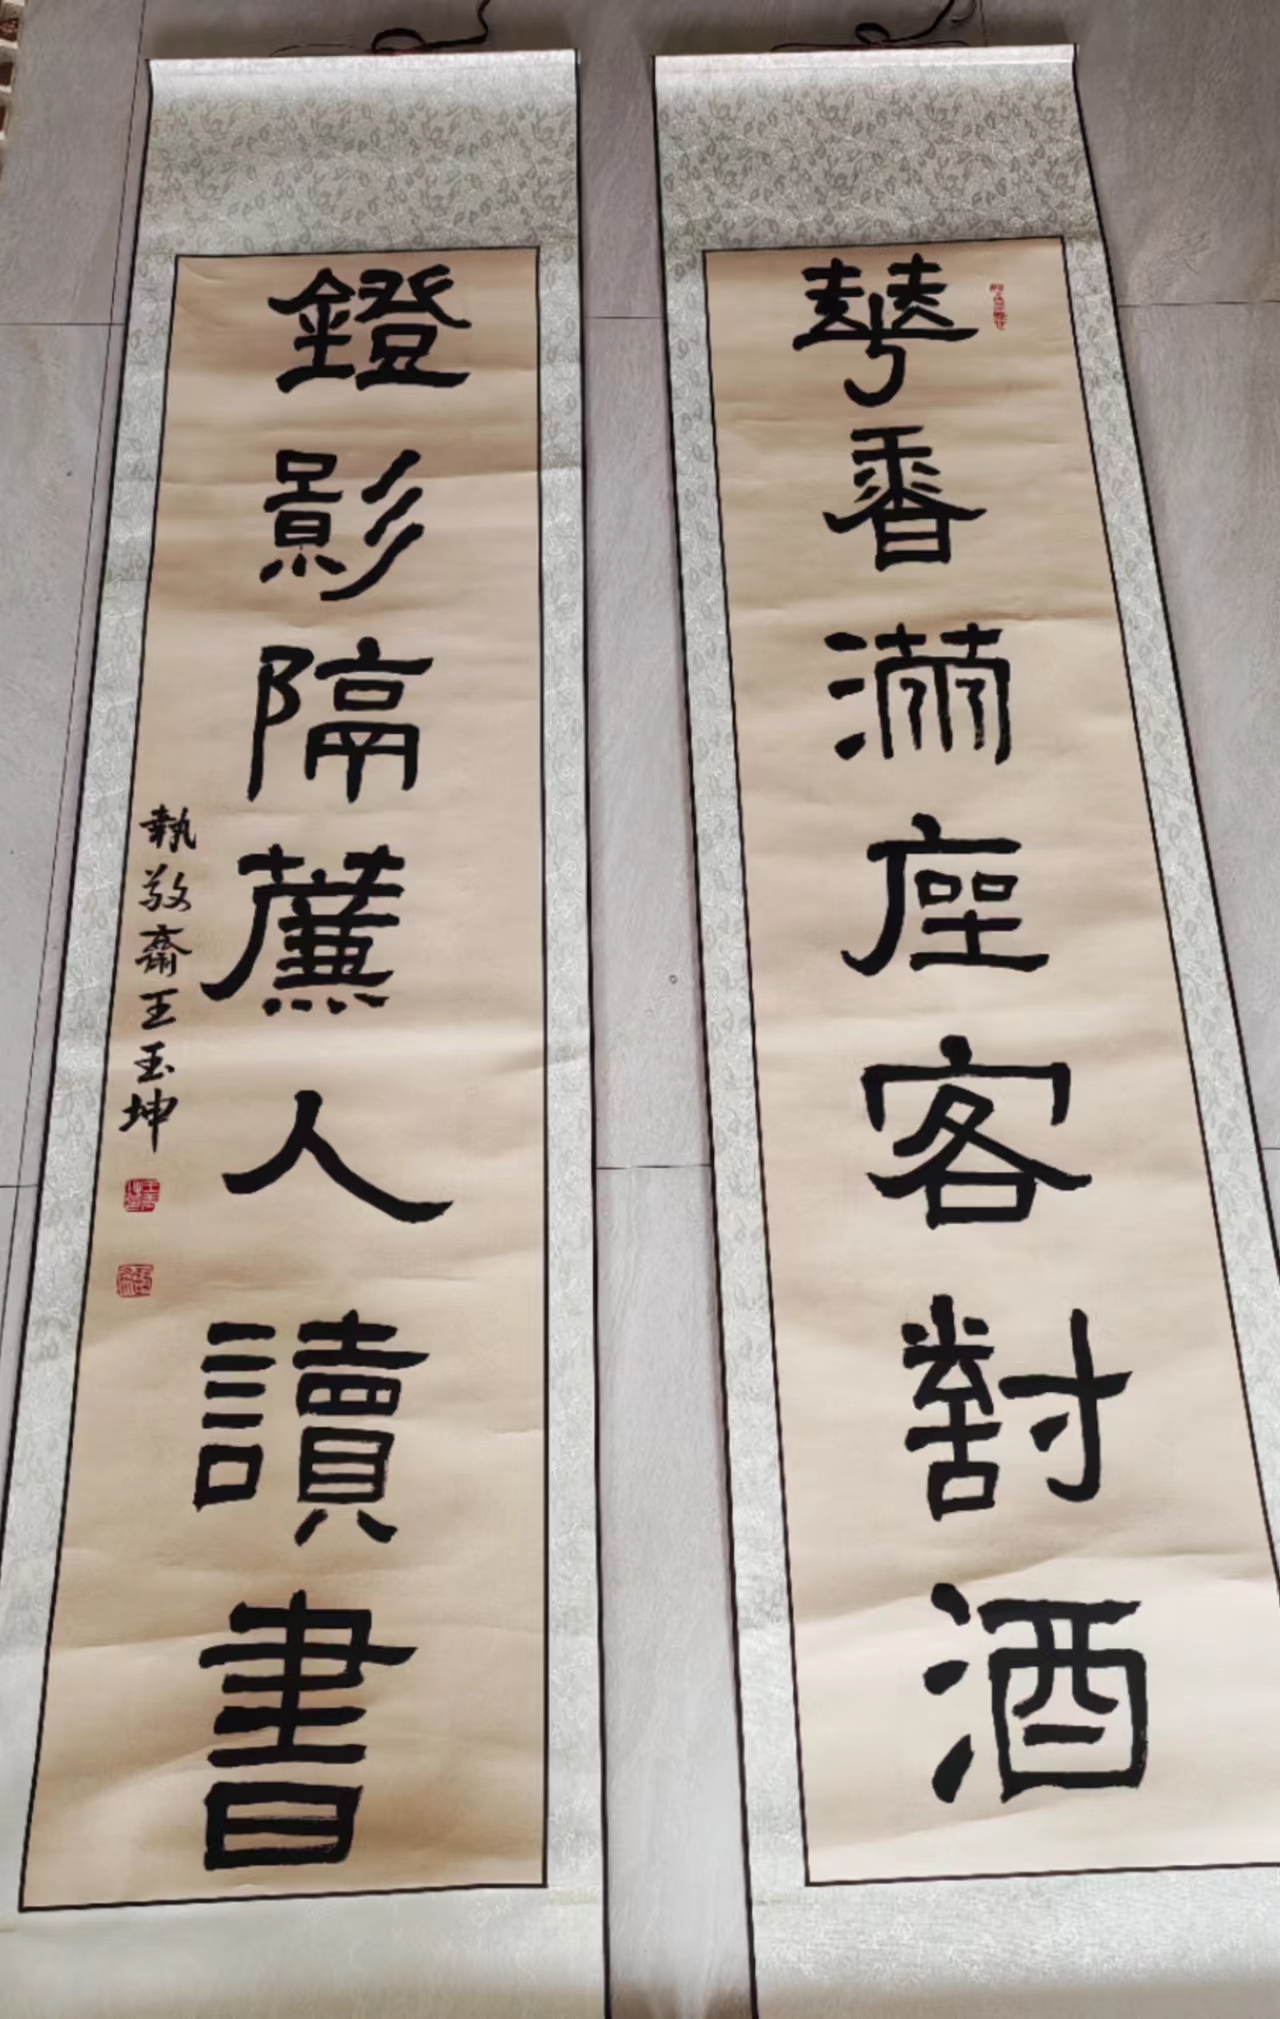 華香滿座客對酒
鐙影隔簾人讀書
執敬齋王玉坤